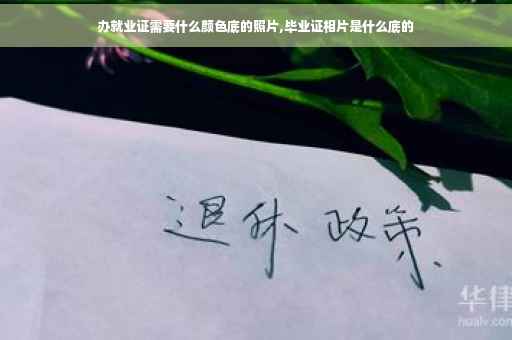 办就业证需要什么颜色底的照片,毕业证相片是什么底的
退休 政策
华律
hualv.com